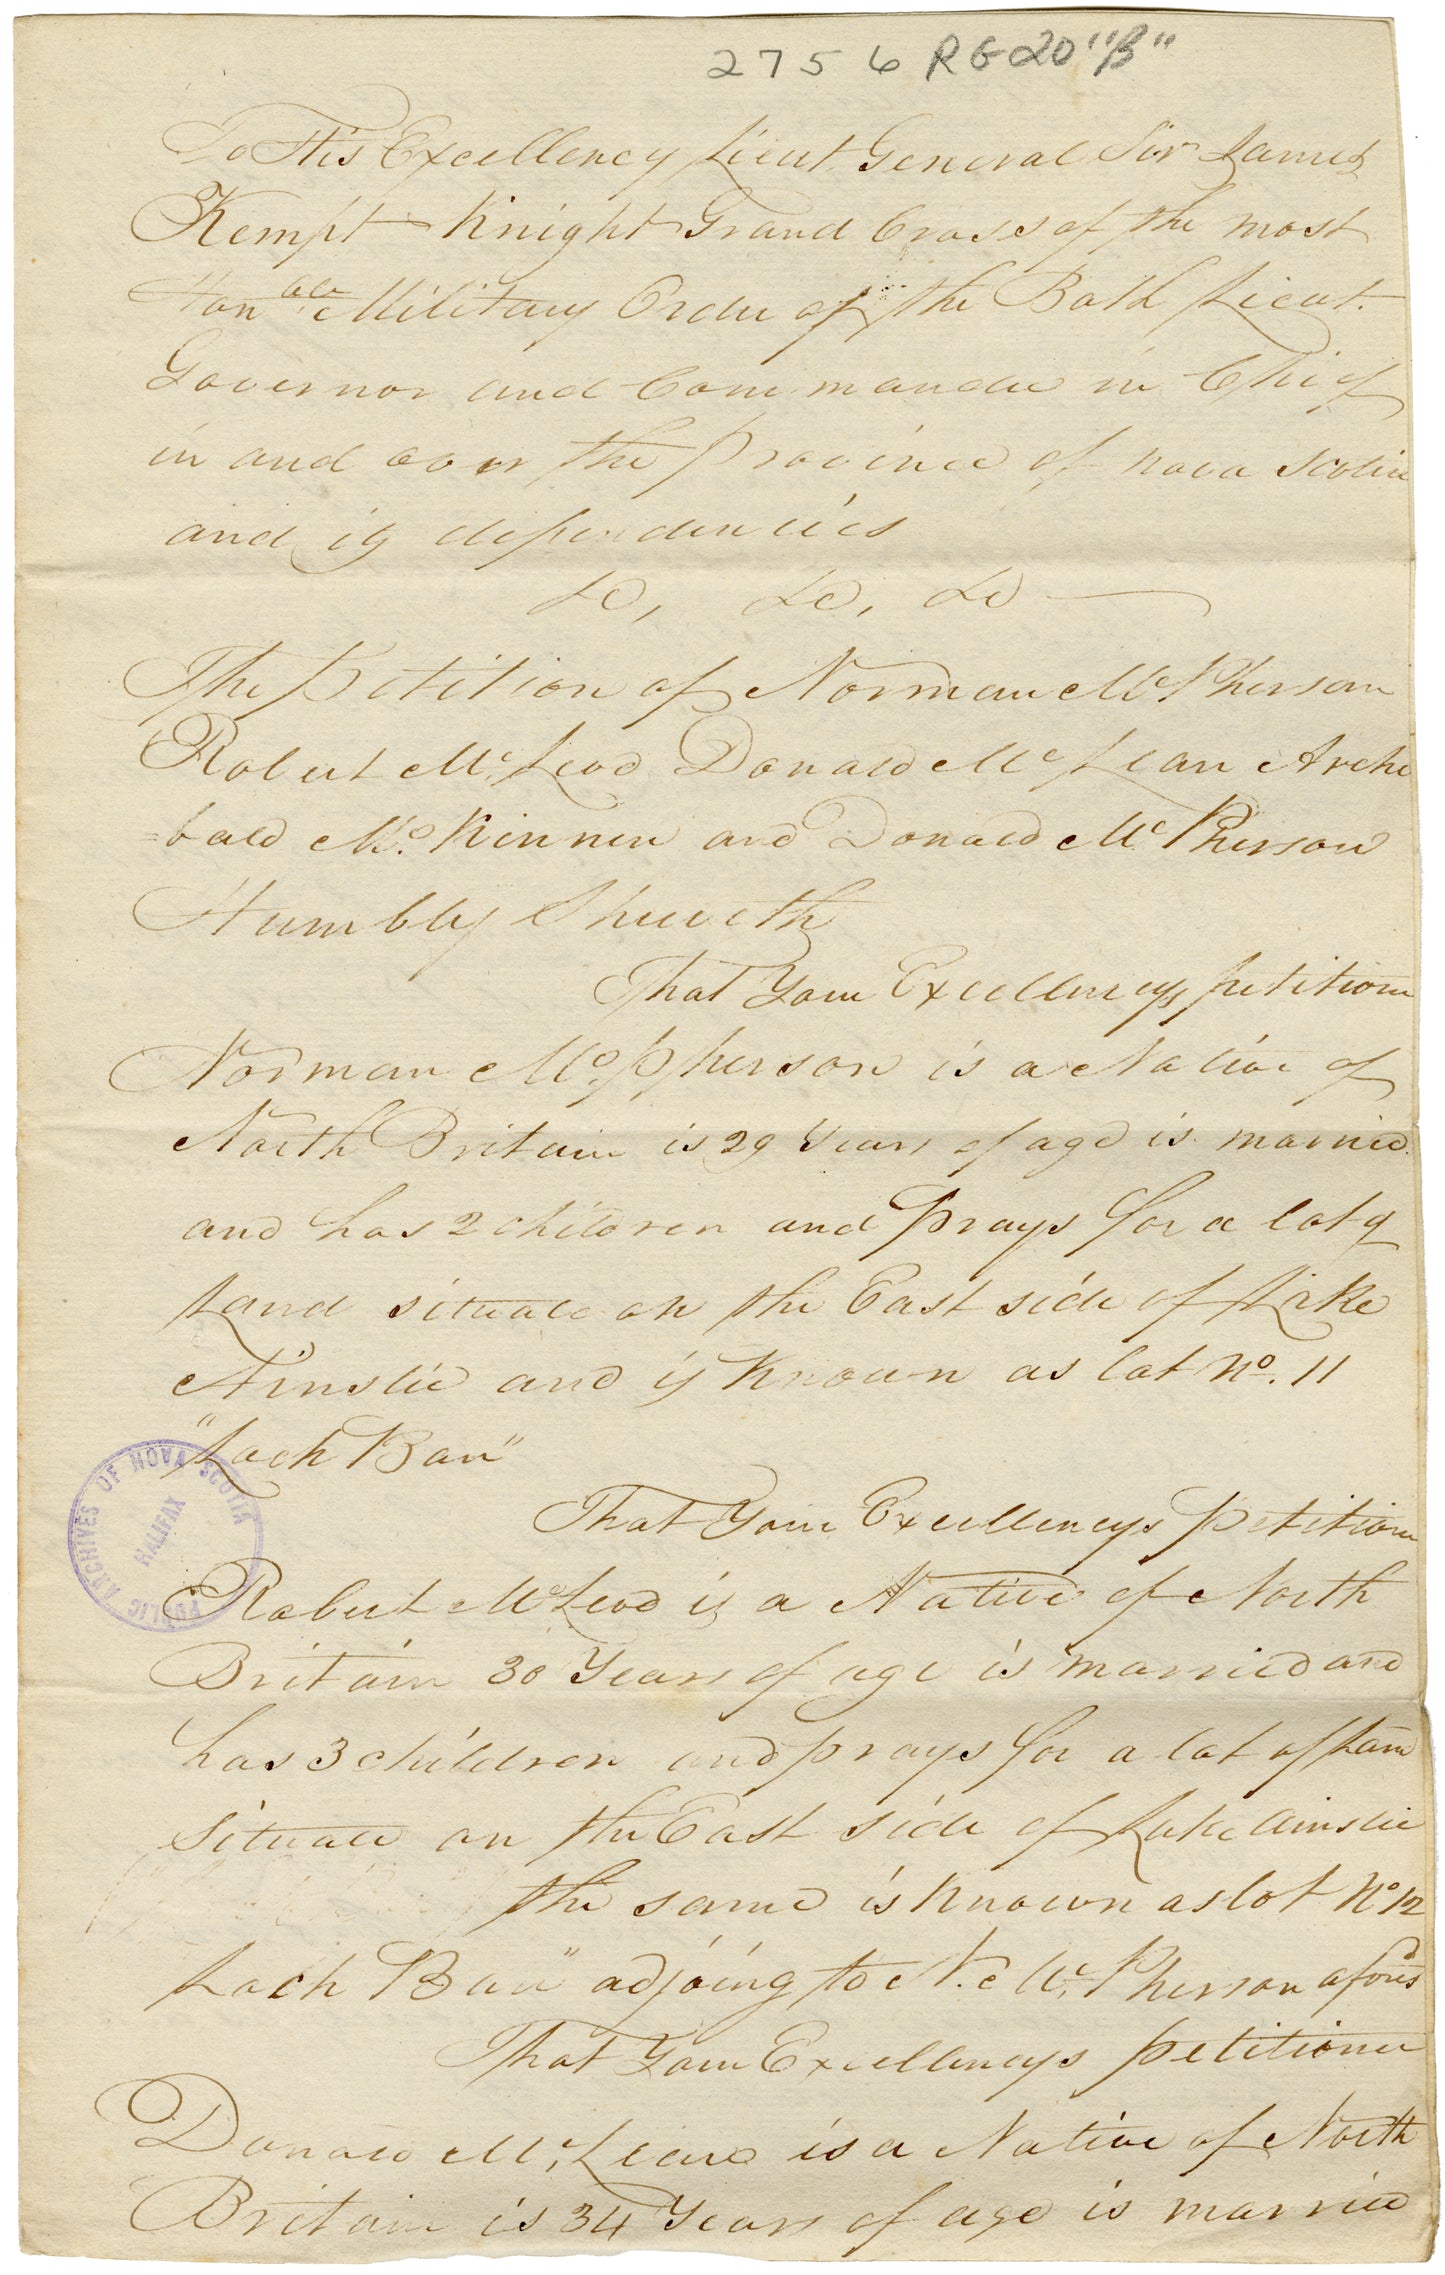 2756 RG20 "B"
To His Excellency Lieut. General Sir James
Kempt Knight Grand Cross of the most
Hon^ble Military Order of the Bath Lieut.
Governor and Commander in Chief
in and over the province of nova scotia
and its dependencies
&c, &c, &c
The Petition of Norman McPherson
Robert McLeod Donald McLean Archi
=bald McKinnen and Donald McPherson
Humbly Sheweth
That Your Excellencys petitioner
Norman McPherson is a Native of
North Britain is 29 Years of age is married
and has 2 children and prays for a lot of
Land situate on the East side of Lake
Ainslie and is Known as lot No. 11
"Loch Ban"
That Your Excellencys Petitioner
Robert McLeod is a Native of North
Britain 30 Years of age is married and
has 3 children and prays for a lot of Land
Situate on the East side of Lake Ainslie
the same is Known as lot No 12
Loch Ban" adjoing to N. McPherson afores^d
That Your Excellencys petitioner
Donald McLean is a Native of North
Britain is 34 Years of age is married
PUBLIC ARCHIVES OF NOVA SCOTIA
HALIFAX